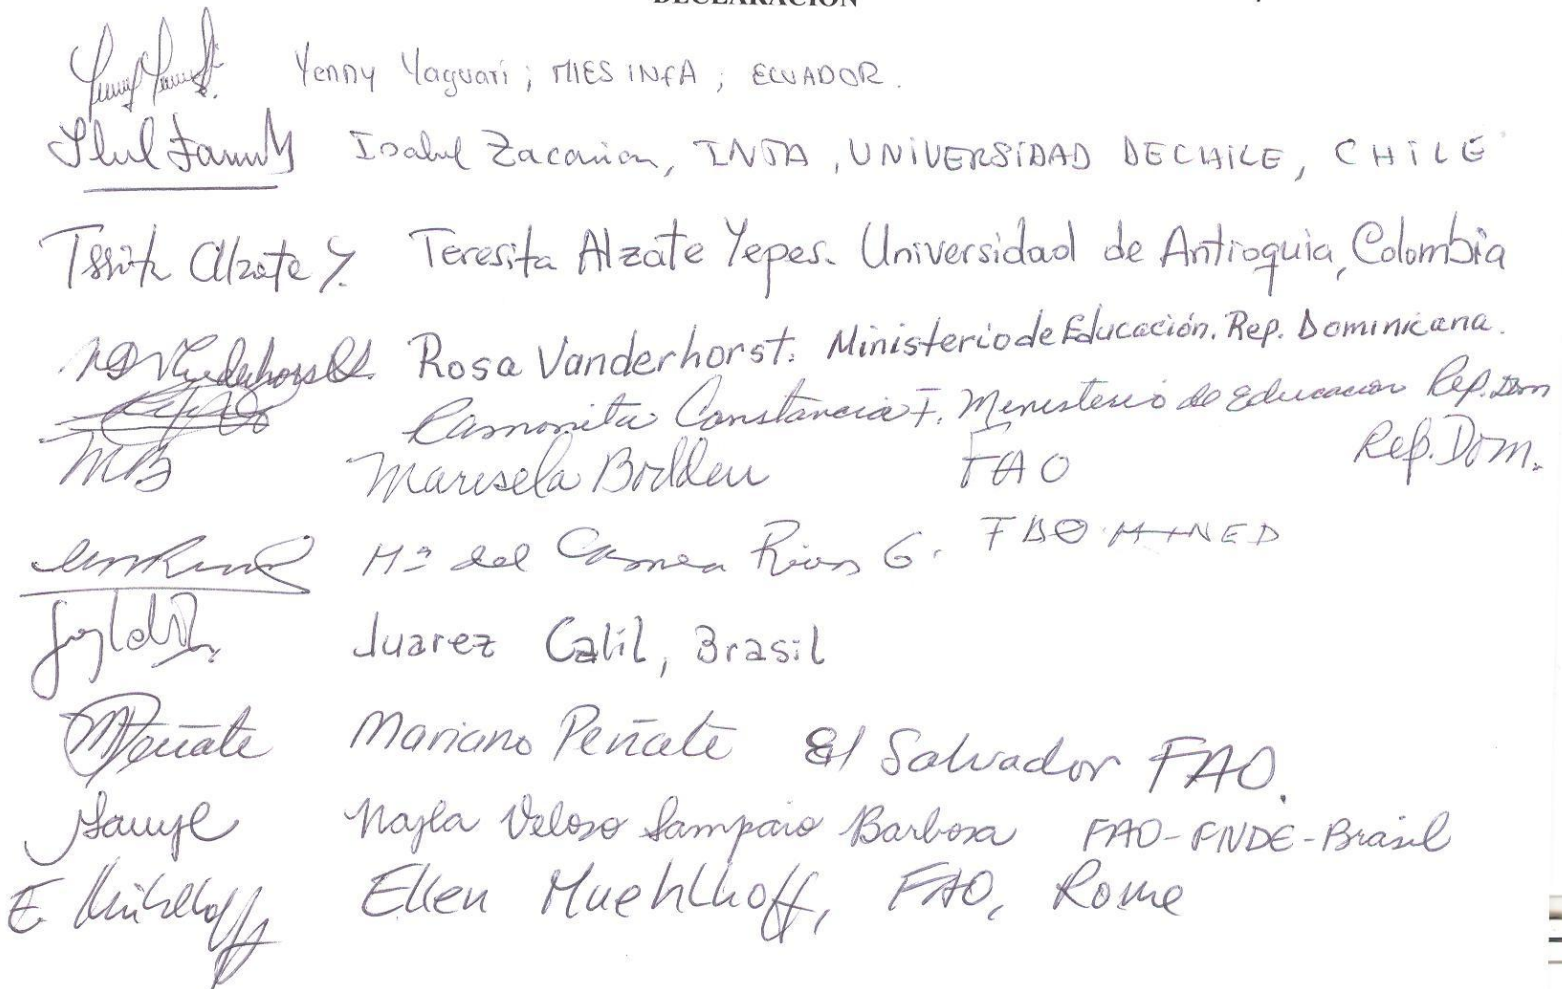 DECLARACIÓN
Yenny Yaguari; MIES INFA; ECUADOR.
Isabel Zacarías, INTA, UNIVERSIDAD DE CHILE, CHILE
Alzate Y. Teresita Alzate Yepes. Universidad de Antioquia, Colombia
Rosa Vanderhorst. Ministerio de Educación. Rep. Dominicana.
Ramonita Constancia F. Ministerio de Educacion Rep. Dom
MB Marisela Bodden FAO Rep. Dom.
Mª del Carmen Rivas G. MINED
Juarez Calil, Brasil
MPeñate Mariano Peñate El Salvador FAO.
Najla Veloso Sampaio Barbosa FAO-FNDE-Brasil
E. Muehlhoff Ellen Muehlhoff, FAO, Rome